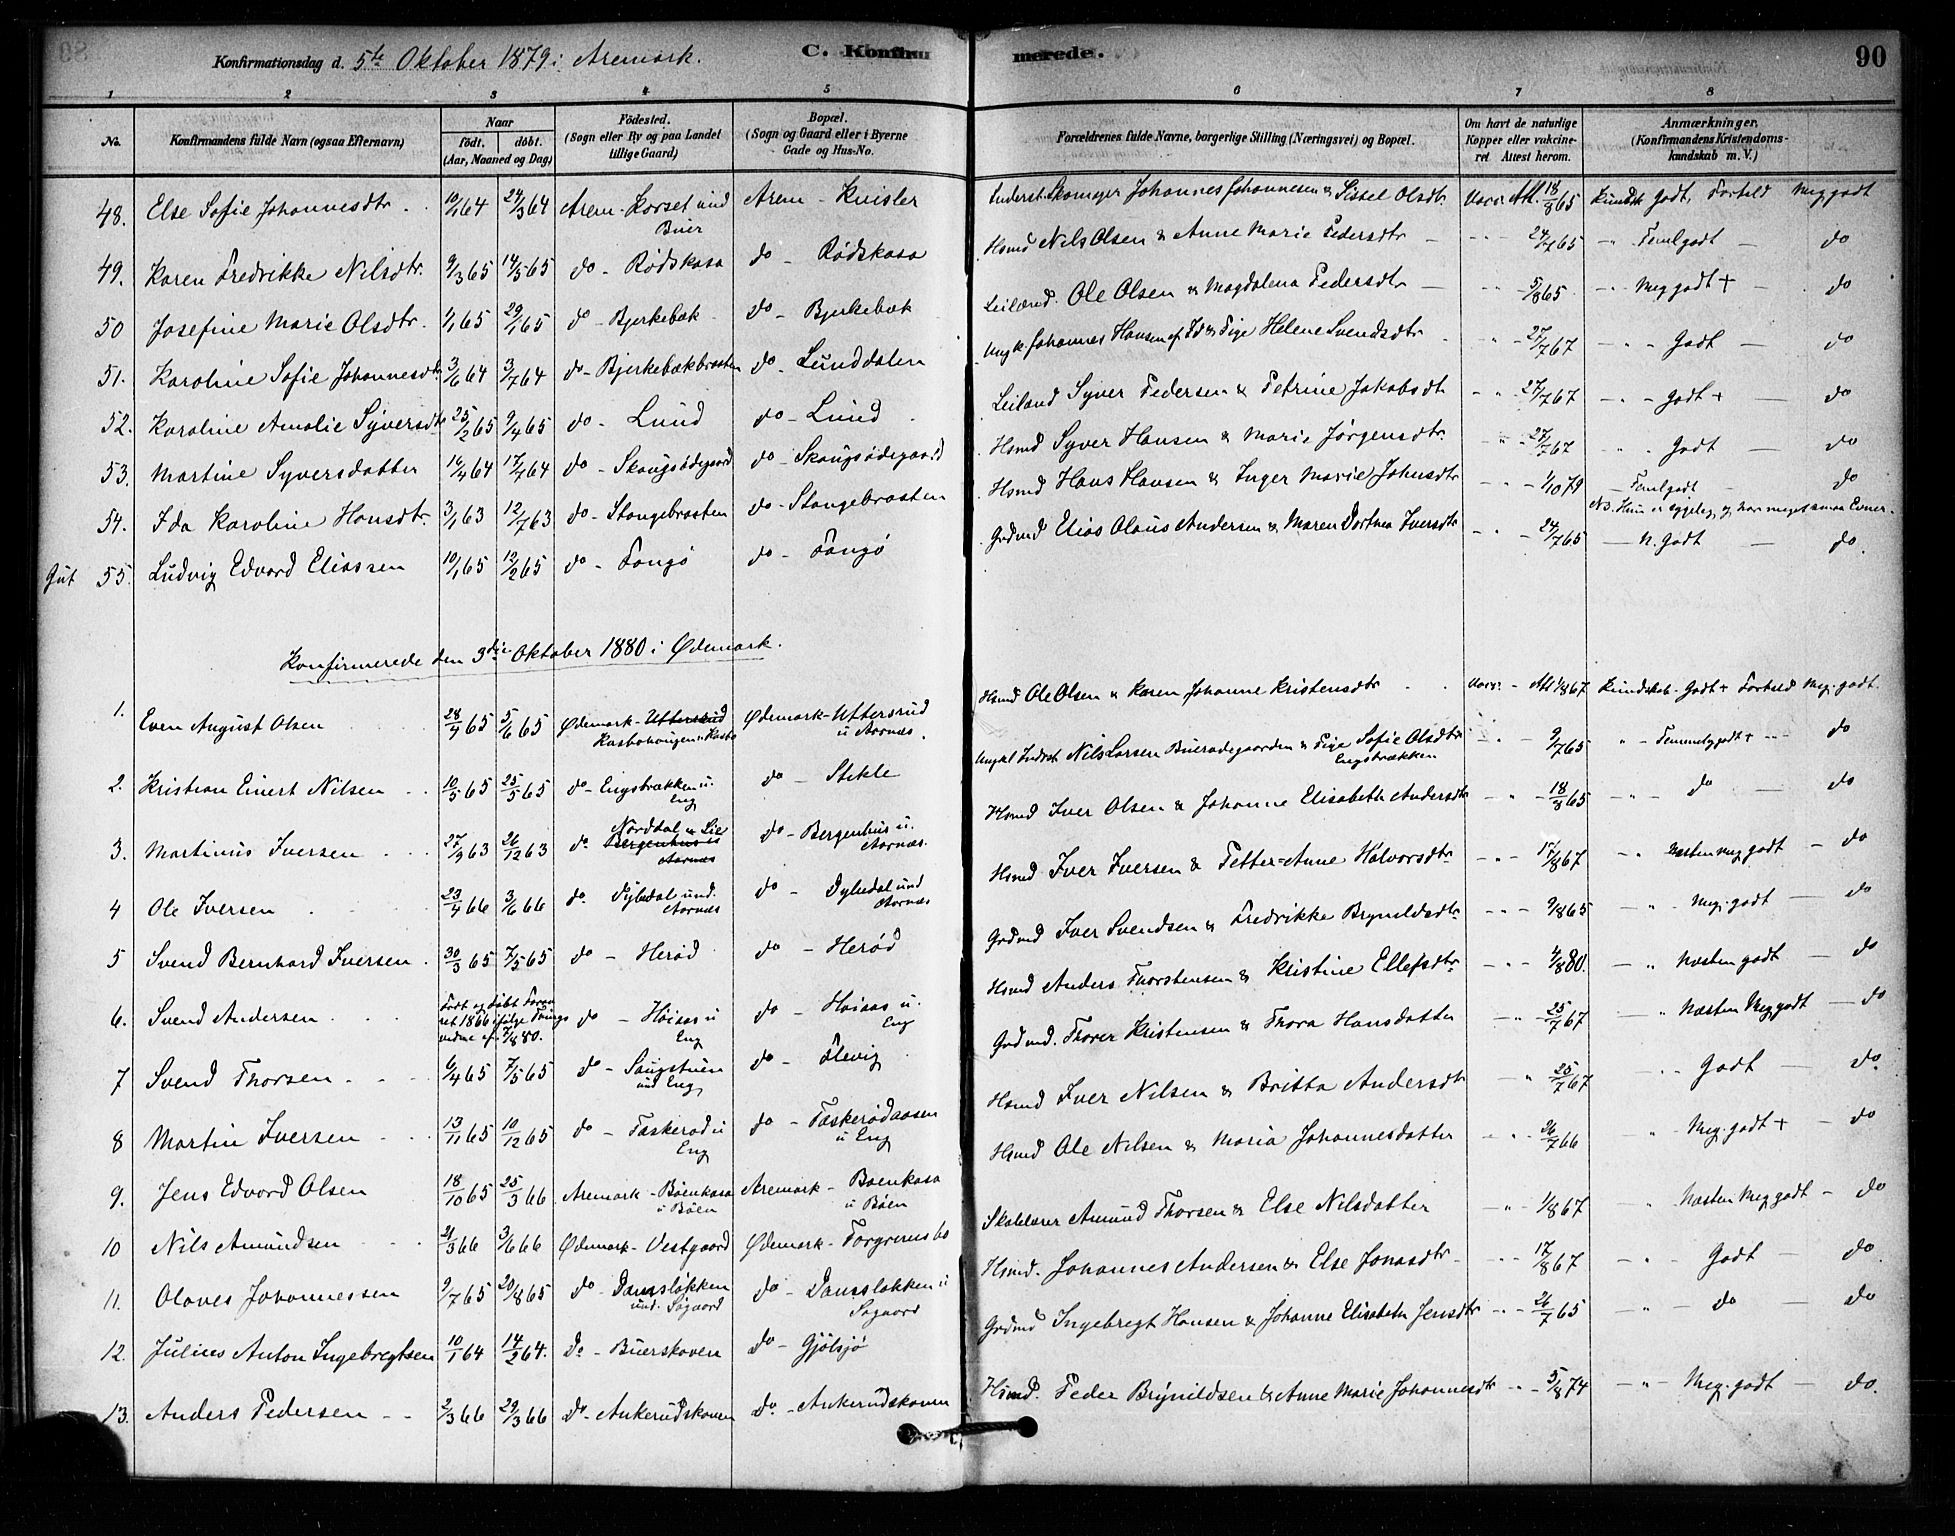 Konfirmationsdag d. 5te Oktober 1879 i Aremark.
C. Konfirmerede.
90
1 2 3 4 5 6 7 8
No.
Konfirmandens fulde Navn (ogsaa Efternavn)
Naar
født. døbt.
(Aar, Maaned og Dag)
Fødested.
(Sogn eller By og paa Landet
tillige Gaard)
Bopæl.
(Sogn og Gaard eller i Byerne
Gade og Hus-No.
Forældrenes fulde Navne, borgerlige Stilling (Næringsvei) og Bopæl.
Om havt de naturlige
Kopper eller vakcine-
ret Attest herom.
Anmærkninger,
(Konfirmandens Kristendoms-
kundskab m. V.)
48. Else Sofie Johannesdtr. 10/1 64 24/3 64 Arem - Korset und Buer Arem - Kvisler Inderst. Skomager Johannes Johannesen & Sissel Olsdtr. Vacc. Att. 18/8 65 Kundsk Godt, Forhld Meg godt
49. Karen Fredrikke Nilsdtr. 9/3 65 14/5 65 do - Rødskasa do - Rødskasa Hsmd Nils Olsen & Anne Marie Pedersdtr - " - 24/7 65 - " Temlgodt - do
50 Josefine Marie Olsdtr. 1/1 65 29/1 65 do - Bjerkebæk do - Bjerkebæk Leilænd. Ole Olsen & Magdalena Pedersdtr - " 5/8 65 - " Meg godt + - do
51. Karoline Sofie Johannesdtr 3/6 64 3/7 64 do - Bjerkebækbraaten do - Lunddalen Ungk. Johannes Hansen af Id & Pige Helene Svendsdtr - " - 27/7 67 - " - Godt - do
52. Karoline Amalie Syversdtr 25/2 65 9/4 65 do - Lund do - Lund Leiland Syver Pedersen & Petrine Jakobsdtr - " - 27/7 67 - " - Godt + - do
53. Martine Syversdatter 16/4 64 17/7 64 do - Skougsødegaard do - Skougsødegaard Hsmd Syver Hansen & Marie Jørgensdtr. - " - 27/7 67 " . Godt - do
54. Ida Karoline Hansdtr. 3/1 63 12/7 63 do - Stangebraaten do - Stangebraaten Hsmd Hans Hansen & Inger Marie Johnsdtr - " - 1/10 79 - Temlgodt - do
NB. Hun er sygelig og har meget smaa Evner.
Gut 55. Ludvig Edvard Eliassen 10/1 65 12/2 65 do - Tangø do - Tangø Grdmd Elias Olaus Andersen & Maren Dortea Iversdtr - " - 24/7 65 - N. Godt - do.
Konfirmerede den 3die Oktober 1880 i Ødemark.
1. Even August Olsen 28/4 65 5/6 65 Ødemark - Uttersrud Kasbohaugen u Kasbo Ødemark - Uttersrud u Aarnæs. Hsmd Ole Olsen & Karen Johanne Kristensdtr Vacc. - Att 1/8 67 Kundskab - Godt + Forhld Meg. godt
2. Kristian Einert Nilsen 10/5 65 25/5 65 do - Engsbrækken u. Eng do - Stikle Ungkl Inderst Nils Larsen Bueraødegaarden & Pige Sofie Olsdtr Engsbrækken " - 9/7 65 " - Temmelg godt + - do
3. Martinus Iversen 27/9 63 26/12 63 do Norddal u Lie Bergenhus u Aarnæs do - Bergenhus u. Aarnæs. Hsmd Iver Olsen & Johanne Elisabeth Andersdtr - " - 18/8 65 - " - do - do
4 Ole Iversen 23/4 66 3/6 66 do. Dybedal und. Aarnæs do - Dybedal und Aarnæs Hsmd Iver Iversen & Petter-Anne Halvorsdtr. - " - 17/8 67 " Næsten meg godt - do
5 Svend Bernhard Iversen. 30/3 65 7/5 65 do - Herød do - Herød Grdmd Iver Svendsen & Fredrikke Bryneldsdtr. - " - 9/8 65 - " - Meg. godt - do
6. Svend Andersen Født og døbt Foraa ret 1866 ifølge Tvings vidne af 7/8 80. do - Høisas u Eng do - Høisas u. Eng Hsmd Anders Thorstensen & Kristine Ellefsdtr. - " - 4/8 80. - " Næsten godt - do
7 Svend Thorsen 6/4 65 7/5 65 do - Saugstuen und Eng do - Flevig Grdmd. Thorer Kristensen & Thora Hansdatter - " - 25/7 67 - " Næsten Meg godt - do
8 Martin Iversen 13/11 65 10/12 65 do - Taskerød u Eng do - Taskerødaasen u Eng Hsmd Iver Nilsen & Britta Andersdtr - " 25/7 67 - " - Godt - do.
9. Jens Edvard Olsen 18/10 65 25/3 66 Aremark - Bøenkasa u Bøen Aremark - Bøenkasa u Bøen Hsmd Ole Nilsen & Maria Johannesdatter - " - 26/7 66 - " Meg. godt + - do
10 Nils Amundsen 21/3 66 3/6 66 Ødemark - Vestgaard Ødemark - Torgrimsbo Skolelærer Amund Thorsen & Else Nilsdatter - " - 1/8 67 - " Næsten Meg godt - do
11. Olaves Johannessen 9/7 65 20/8 65 do - Dansløkken und. Søgaard do - Dansløkken u Søgaard Hsmd. Johannes Andersen & Else Jonasdtr. " - 17/8 67 - " Godt - do.
12. Julius Anton Ingebregtsen 10/1 64 14/2 64. Do - Buerskoven Do - Gjølsjø Grdmd Ingebregt Hansen & Johanne Elisabeth Jensdtr " - 26/7 65 - " - do - do
13. Anders Pedersen 2/3 66 29/3 66 Do - Ankerudskoven Do. - Ankerudskoven Hsmd. Peder Brynildsen & Anne Marie Johannesdtr " - 5/8 74 - " - Meg. godt - do.